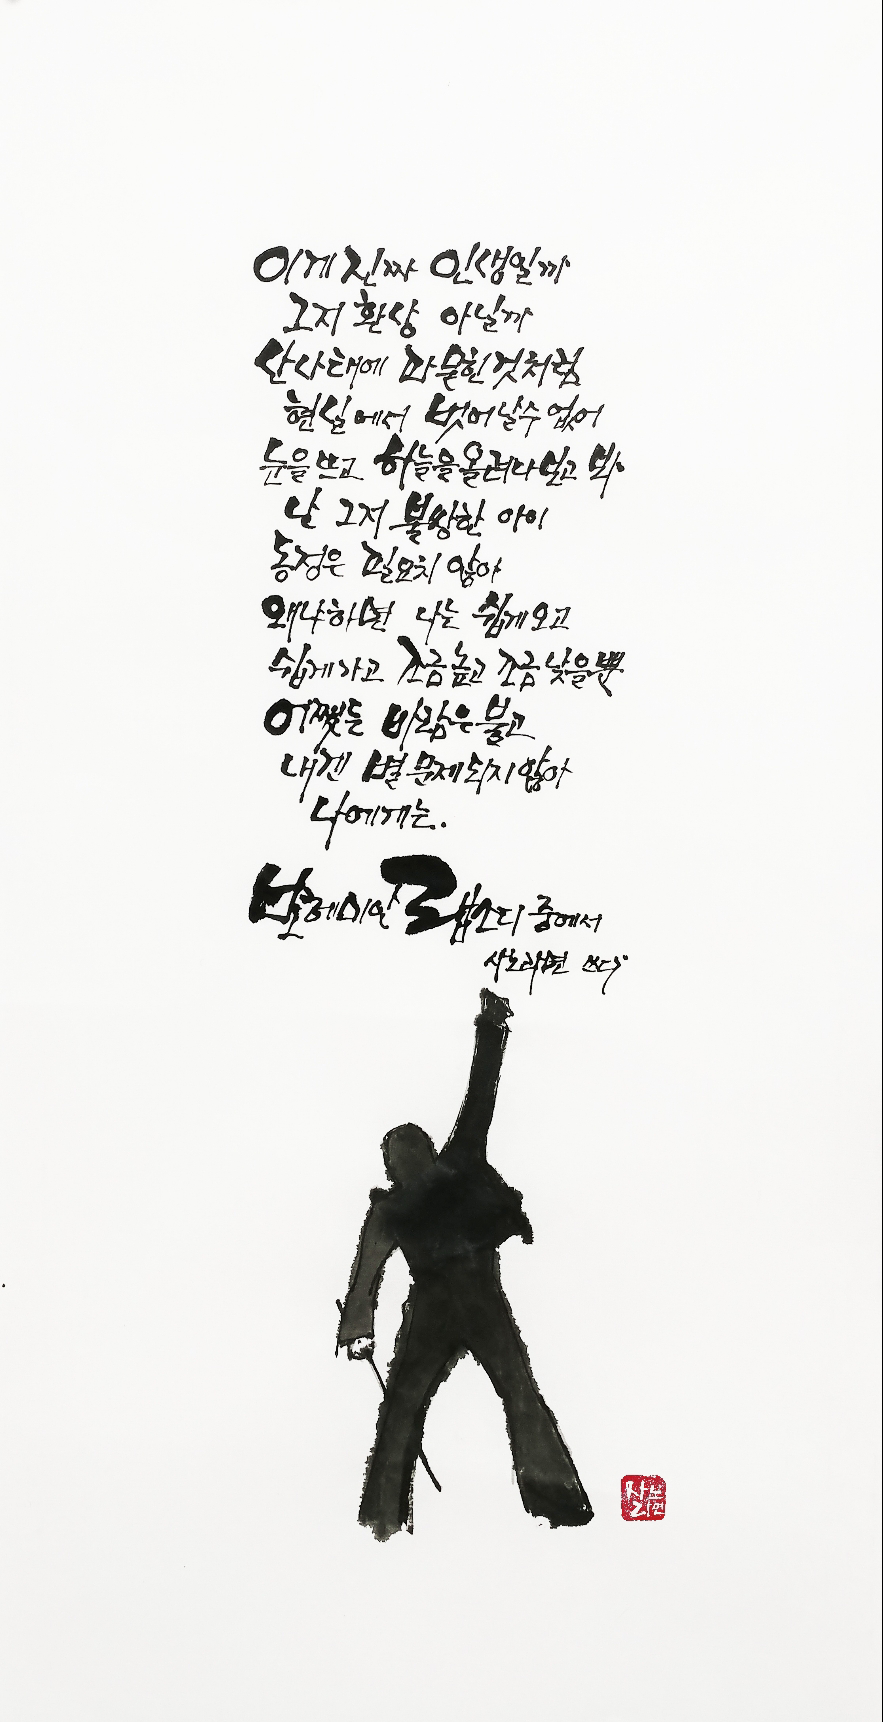 이게 진짜 인생일까
그저 환상 아닐까
산사태에 파묻힌것처럼
현실에서 벗어날수 없어
눈을 뜨고 하늘을 올려다 보고 봐
난 그저 불쌍한 아이
동정은 필요치 않아
왜냐하면 나는 쉽게 오고
쉽게 가고 조금 높고 조금 낮을 뿐
어쨌든 바람은 불고
내겐 별 문제 되지 않아
나에게는.
보헤미안 랩소디 중에서
사노라면 쓰다